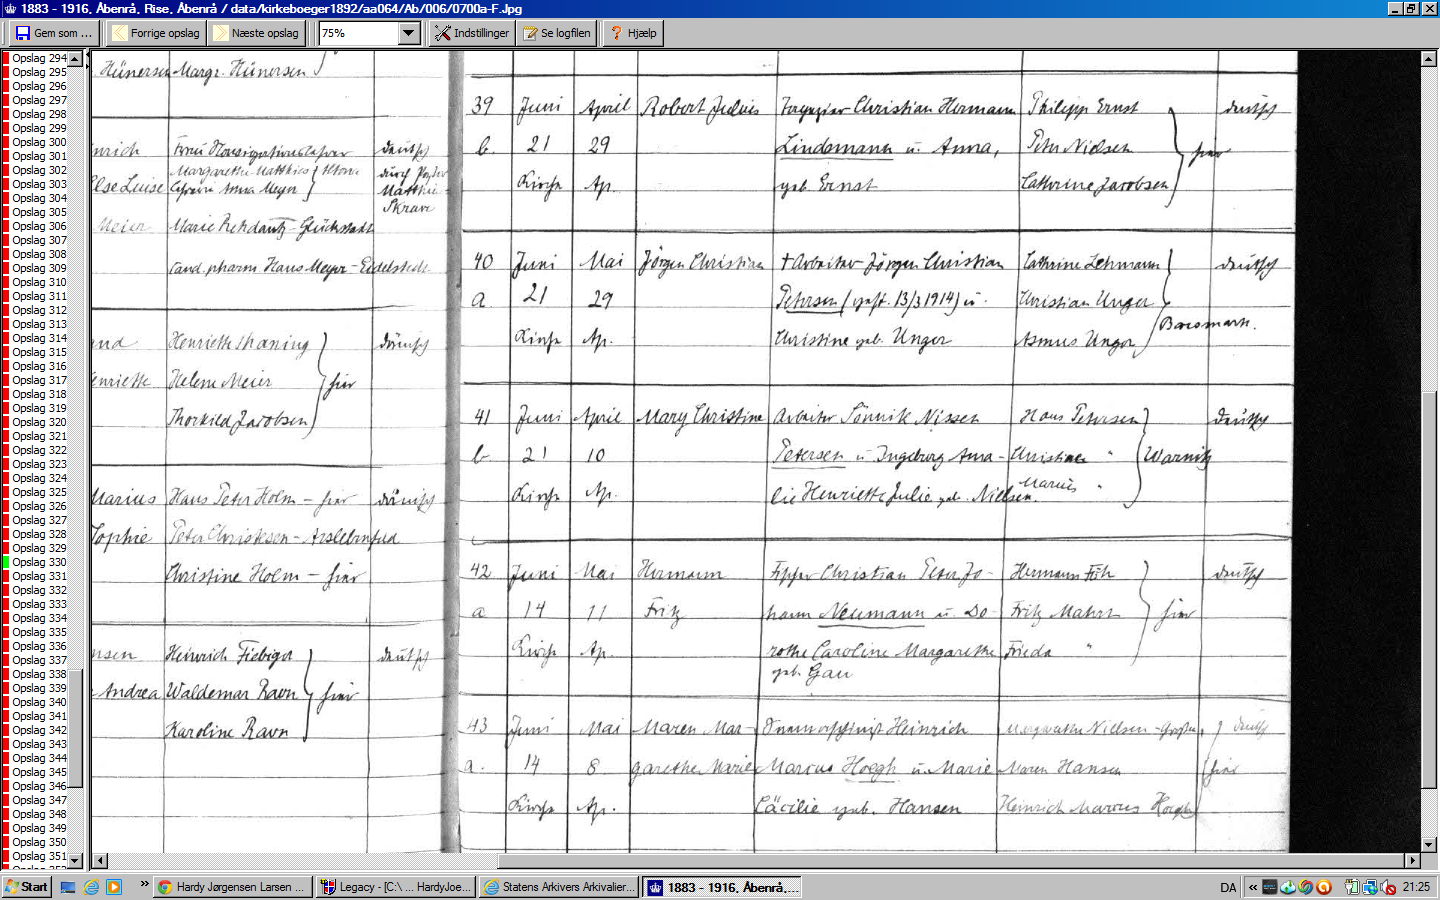 1883 - 1916, Åbenrå, Rise, Åbenrå / data/kirkeboeger1892/aa064/Ab/006/0700a-F.Jpg
Gem som ... Forrige opslag Næste opslag 75% Indstillinger Se logfilen Hjælp
Opslag 294
Opslag 295
Opslag 296
Opslag 297
Opslag 298
Opslag 299
Opslag 300
Opslag 301
Opslag 302
Opslag 303
Opslag 304
Opslag 305
Opslag 306
Opslag 307
Opslag 308
Opslag 309
Opslag 310
Opslag 311
Opslag 312
Opslag 313
Opslag 314
Opslag 315
Opslag 316
Opslag 317
Opslag 318
Opslag 319
Opslag 320
Opslag 321
Opslag 322
Opslag 323
Opslag 324
Opslag 325
Opslag 326
Opslag 327
Opslag 328
Opslag 329
Opslag 330
Opslag 331
Opslag 332
Opslag 333
Opslag 334
Opslag 335
Opslag 336
Opslag 337
Opslag 338
Opslag 339
Opslag 340
Opslag 341
Opslag 342
Opslag 343
Opslag 344
Opslag 345
Opslag 346
Opslag 347
Opslag 348
Opslag 349
Opslag 350
Opslag 351
Hünersen Margr. Hünersen
nrich Frau deutsch
Margarethe Matthies Altona durch Pastor
Else Luise Anna Meyer Matthies
Skrave
Meier Marie Rehdantz - Glückstadt
Cand. pharm Hans Meyer - Eidelstedt
Henriette Haning dänisch
enriette Helene Meier hier
Thorkild Jacobsen
Marius Hans Peter Holm - hier dänisch
Sophie Peter Christesen - Arslebenfeld
Christine Holm - hier
nsen Heinrich Fiebiger deutsch
Andrea Waldemar Ravn hier
Karoline Ravn
39 Juni April Robert Julius Christian Hermann Philipp Ernst deutsch
b. 21 29 Lindemann u. Anna, Peter Nielsen hier
Kirche Ap. geb. Ernst Cathrine Jacobsen
40 Juni Mai Jörgen Christian † Arbeiter Jörgen Christian Cathrine Lehmann deutsch
a. 21 29 Petersen (gest. 13/3 1914) u. Christian Unger
Kirche Ap. Christine geb. Unger Asmus Unger Barsmark.
41 Juni April Mary Christine Arbeiter Sönnik Nissen Hans Petersen deutsch
b. 21 10 Petersen u. Ingeborg Ama- Christine " Warnitz
Kirche Ap. lie Henriette Julie geb. Nielsen. Marius "
42 Juni Mai Hermann Christian Peter Jo- Hermann deutsch
a 14 11 Fritz hann Neumann u. Do- Fritz Mahrt hier
Kirche Ap. rothe Caroline Margarethe Frieda "
geb. Gau
43 Juni Mai Maren Mar- Heinrich Margarethe Nielsen deutsch
a. 14 8 garethe Marie Marcus Hoegh u. Marie Maren Hansen hier
Kirche Ap. Cäcilie geb. Hansen Heinrich Marcus Hoegh
Start » Hardy Jørgensen Larsen ... Legacy - [C:\ ... HardyJoe... Statens Arkivers Arkivalier... 1883 - 1916, Åbenrå,... DA « 21:25